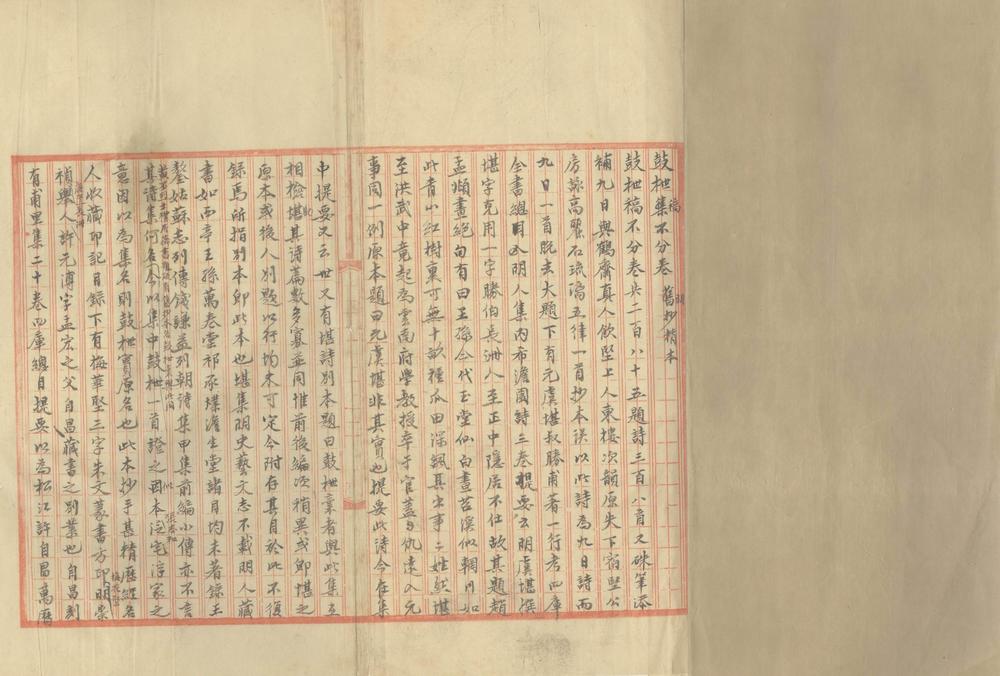 鼓枻稿不分卷 舊抄精本
鼓枻稿不分卷共二百八十五題詩三百八首又硃筆添
補九日與鶴齋真人飲堅上人東樓次韻原失下宿堅公
房詠高麗石琉璃五律一首抄本误以此詩為九日詩而
九日一首既去大題下有元虞堪叔勝甫著一行考四庫
全書總目明人集內希澹園詩三卷提要云明虞堪撰
堪字克用一字勝伯長洲人至正中隱居不仕故其題趙
孟頫畫絕句有曰王孫今代玉堂仙白畫苕溪似輞川如
此青山紅樹裏可無十畝種瓜田深諷其出事二姓然堪
至洪武中竟起為雲南府學教授卒于官蓋與仇遠入元
事同一例原本題曰元虞堪非其實也提要此詩今在集
中提要又云世又有堪詩別本題曰鼓枻稾者與此集互
相檢勘其詩篇數多寡並同惟前後編次稍異或即堪之
原本或後人別題以行均未可定今附存其目於此不復
錄焉所指別本即此本也堪集明史藝文志不載明人藏
書如西亭王孫萬卷堂祁承㸁澹生堂諸目均未著錄王
鏊姑蘇志列傳錢謙益列朝詩集甲集前編小傳亦不言
其詩集何名今以集中鼓枻一首證之因本泛宅浮家之
意因以為集名則鼓枻實原名也此本抄手甚精歷經名
人收藏印記目錄下有梅華墅三字朱文篆書方印明崇
禎舉人許元溥字孟宏之父自昌藏書之別業也自昌刻
有甫里集二十卷四庫總目提要以為松江許自昌萬曆